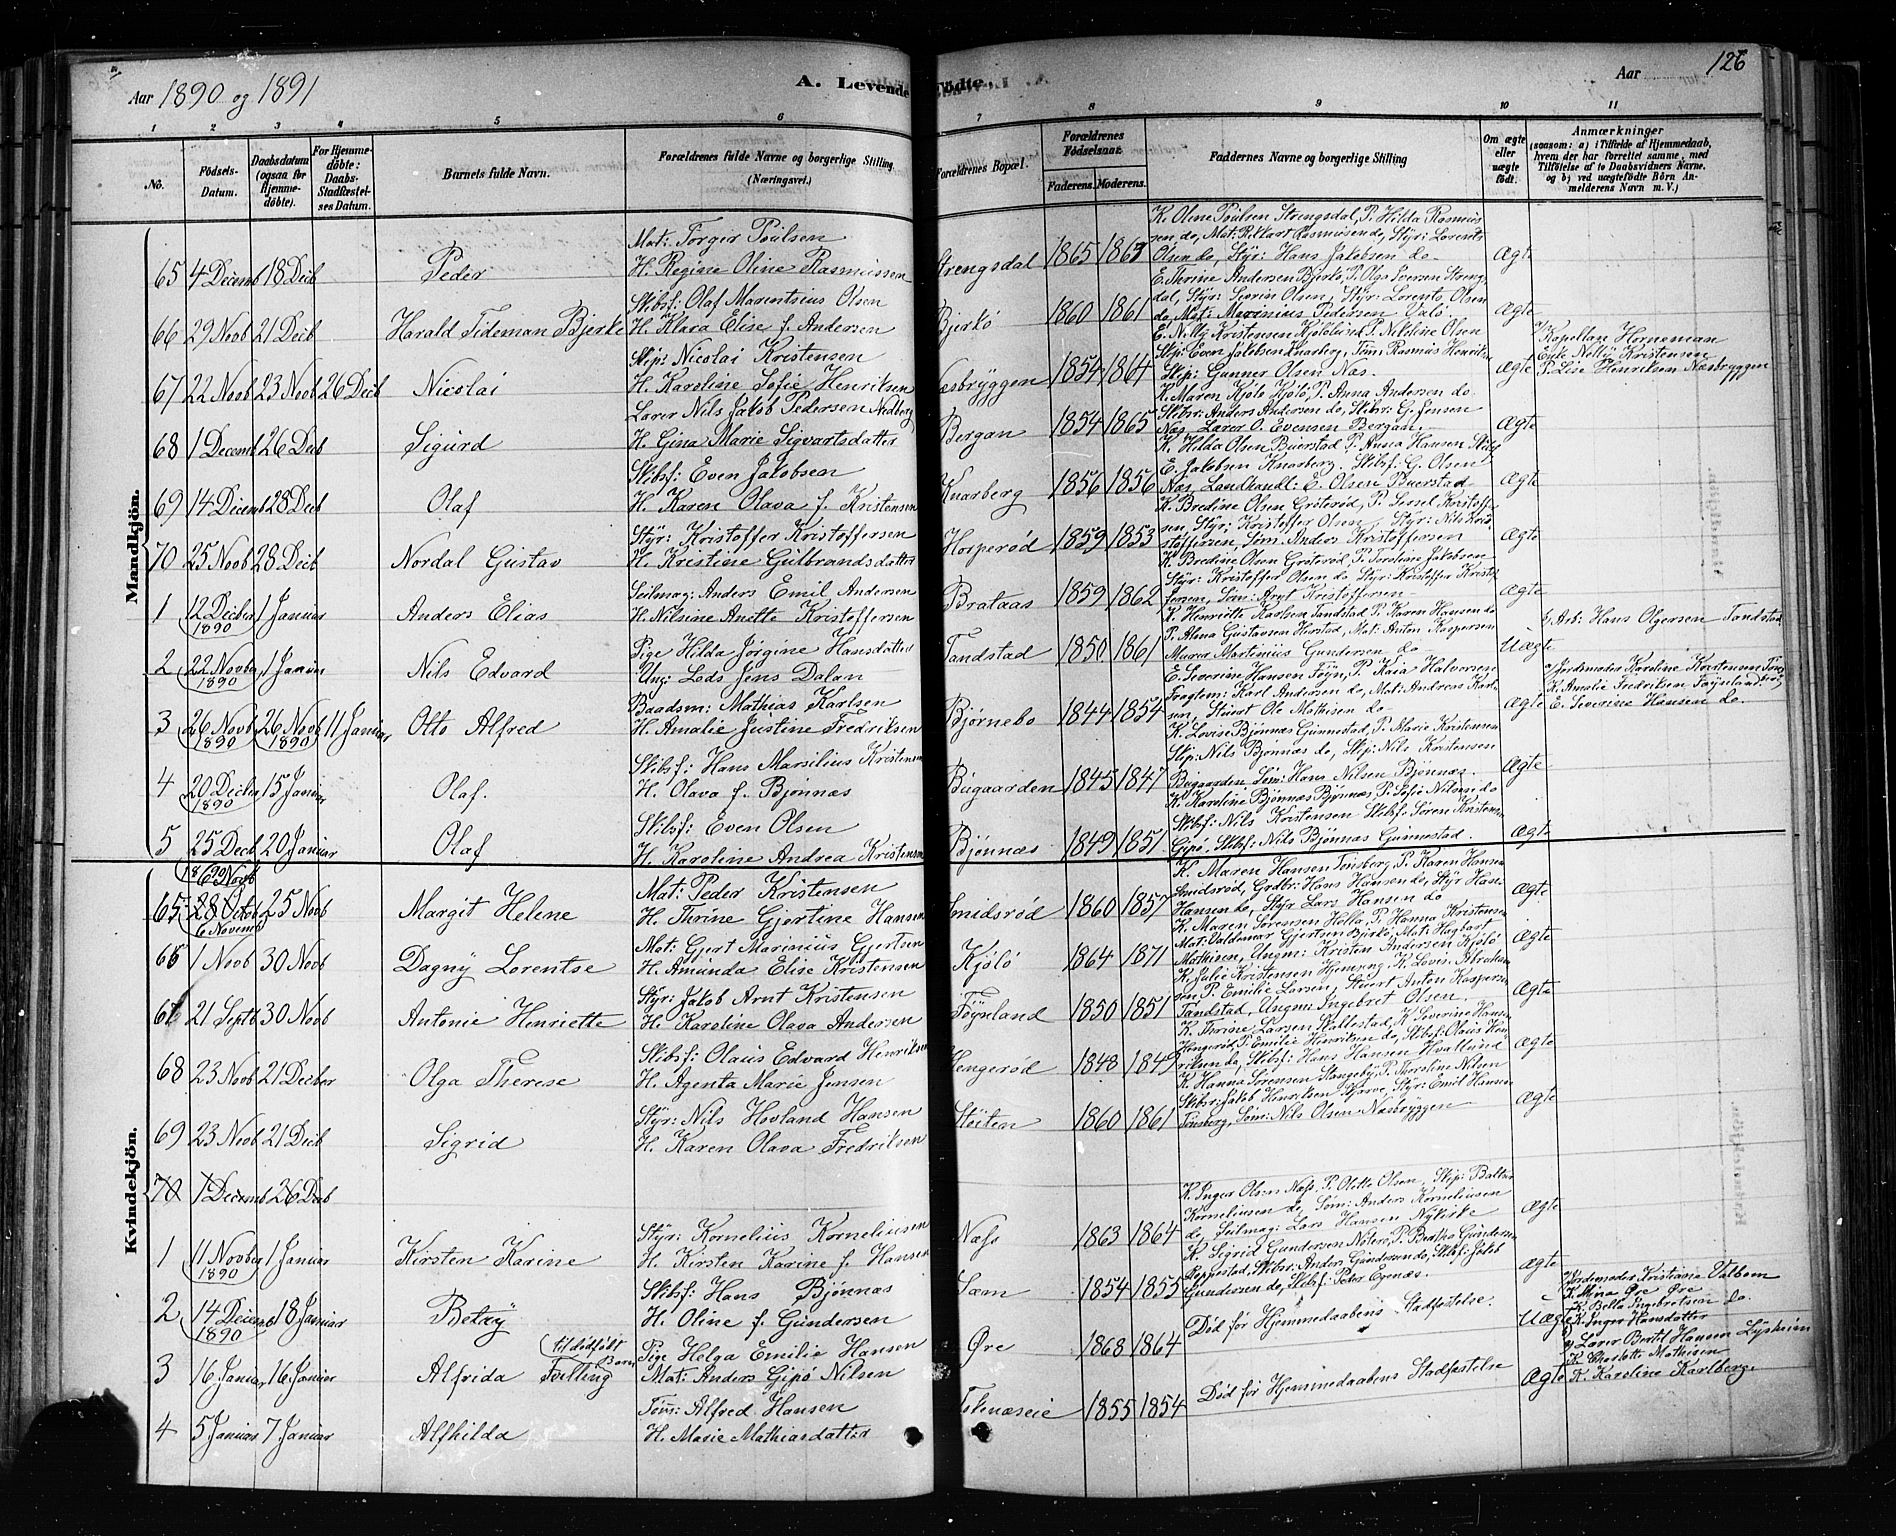 Aar 1890 og 1891
A. Levende Födte.
Aar 126
1 2 3 4 5 6 7 8 9 10 11
No.
Födsels-Datum.
Daabsdatum (ogsaa for Hjemmedöbte).
For Hjemmedöbte: Daabs-Stadfæstelses Datum.
Barnets fulde Navn.
Forældrenes fulde Navne og borgerlige Stilling (Næringsvei.)
Forældrenes Bopæl.
Forældrenes Födselsaar.
Faderens. Moderens.
Faddernes Navne og borgerlige Stilling
Om ægte eller uægte födt.
Anmærkninger
(saasom: a) i Tilfælde af Hjemmedaab, hvem der har forrettet samme, med Tilföielse af to Daabsvidners Navne. og b) ved uægtefödte Börn Anmelderens Navn m. V.)
Mandkjön.
65 4 Decemb 18 Decb Peder
Mat: Torger Poulsen
H. Regine Oline Rasmussen
Strengsdal 1865 1863 Ægte
K. Oline Poulsen Strengsdal, P. Hilda Rasmus
sen do, Mat: Rikart Rasmusen do, Styr: Lorents
Olsen do, Styr: Hans Jakobsen do
66 29 Novb 21 Decb Harald Tideman Bjerke
Skibsf: Olaf Marentsius Olsen
H. Klara Elise f. Andersen
Bjerkö 1860 1861 Ægte
E. Thrine Andersen Bjerkö, P. Olga Iversen Streng
dal, Styr: Severin Olsen, Styr: Lorents Olsen
do, Mat: Marinius Pedersen Valö.
67 22 Novb 23 Novb 26 Decb Nicolai
Skip: Nicolai Kristensen
H. Karoline Sofie Henriksen
Næsbryggen 1854 1864 Ægte
E. Nilli Kristensen Kjölölund, P. Nikoline Olsen
Skip: Even Jakobsen Knarberg, Töm: Rasmus Henriksen
Skip: Gunner Olsen Næs.
Kapellan Horneman
Enke Nelly Kristensen
P. Lise Henriksen Næsbryggen
68 1 Decemb 26 Decb Sigurd
Lærer Nils Jakob Pedersen Nedberg
H. Gina Marie Sigvartsdatter
Bergan 1854 1865 Ægte
K. Maren Kjölö Kjölö, P. Anna Andersen do
Skibsr: Anders Andersen do, Skibsr: G. Jensen
Næs, Lærer O. Evensen Bergan.
69 14 Decemb 28 Decb Olaf
Skibsf: Even Jakobsen
H. Karen Olava f. Kristensen
Knarberg 1856 1856 Ægte
K. Hilda Olsen Buerstad P. Anna Hansen
E. Jakobsen Knarberg. Skibsf: G. Olsen
Næs, Landhandl: E. Olsen Buerstad
70 25 Novb 28 Decb Nordal Gustav
Styr: Kristoffer Kristoffersen
H. Kristine Gulbrandsdatter
Horperød 1859 1853 Ægte
K. Bredine Olsen Gröterød, P. Sersel Kristoff
sen, Styr: Kristoffer Olsen, Styr: Nils Kris
stoffersen, Söm: Anders Kristoffersen
1 12 Decber 1890 1 Januar Anders Elias
Seilmag: Anders Emil Andersen
H. Nilsine Anette Kristoffersen
Brataas 1859 1862 Ægte
K. Bredine Olsen Gröterød, P. Torstine Jakobsen
Styr: Kristoffer Olsen do Styr: Kristoffer Kristof
fersen, Söm: Arnt Kristoffersen
2 22 Novber 1890 1 Januar Nils Edvard
Pige Hilda Jörgine Hansdatter
Ung: Lods Jens Dalan
Tandstad 1850 1861 Uægte
K. Henriette Karlsen Tandstad P. Karen Hansen do
P. Alma Gustavsen Herstad, Mat: Anton Kaspersen
Murer Martinius Gundersen do
Arb: Hans Olgersen Tandstad
3 26 Novb 1890 26 Novb 1890 11 Januar Otto Alfred
Baadsm: Mathias Karlsen
H. Amalie Justine Fredriksen
Bjørnebo 1844 1854 Ægte
E. Severine Hansen Töyn, P. Kaia Halvorsen
Fragtem: Karl Andersen do, Mat: Andreas Karl
sen, Stuert Ole Mathisen do
Jordemoder Karoline Karstensen
K. Amalie Fredriksen Føynland
E. Severine Hansen do.
4 20 Decber 1890 15 Januar Olaf
Skibsf: Hans Marsilius Kristensen
H. Olava f. Bjønnæs
Bugaarden 1845 1847 Ægte
K. Lovise Bjønnæs Gunnestad, P. Marie Kristensen
Skip: Nils Bjønnæs do, Skip: Nils Kristensen
Bugaarden, Söm: Hans Nilsen Bjønnæs
5 25 Decb 20 Januar Olaf
Skibsf: Even Olsen
H. Karoline Andrea Kristensen
Bjønnæs 1849 1851 Ægte
K. Karoline Bjønnæs Bjønnæs P. Sofie Nilsen do
Skibsf: Nils Kristensen Skibsf: Sören Kristensen
Gipö, Skibsf: Nils Bjønnæs Gunnestad.
Kvindekjön.
65 28 Octob 6 Novemb 25 Novb Margit Helene
Mat: Peder Kristensen
H. Thrine Gjertine Hansen
Smidsrød 1860 1857 Ægte
K. Maren Hansen Tönsberg, P. Karen Hansen
Smidsrød, Grdbr: Hans Hansen do, Styr Han
Hansen do, Styr Lars Hansen do
66 1 Novb 30 Novb Dagny Lorentse
Mat: Gjert Marinius Gjertsen
H. Amunda Elise Kristensen
Kjölö 1864 1871 Ægte
K. Maren Sörensen Holla, P. Hanna Kristensen
Mat: Valdemar Gjertsen Bjerkö, Mat: Hagbart
Mathisen, Ungm: Kristen Andersen Kjölö
67 21 Septb 30 Novb Antonie Henriette
Styr: Jakob Arnt Kristensen
H. Karoline Olava Andersen
Föynland 1850 1851 Ægte
K. Julie Kristensen Hjemseng, K. Lovis. Abraham
sen P. Emilie Larsen, Stuert Anton Kaspersen
Tandstad, Ungm: Ingebret Olsen.
68 23 Novb 21 Decber Olga Therese
Skibsf: Olaus Edvard Henriksen
H. Agenta Marie Jensen
Hengerød 1848 1849 Ægte
K. Thrine Larsen Skallestad, K. Severine Hansen
Hengerød P. Emilie Henriksen do, Skibsf: Olaus Hen
riksen do, Skibsf: Hans Hansen Hvallund
69 23 Novb 21 Decb Sigrid
Styr: Nils Hovland Hansen
H. Karen Olava Fredriksen
Støiten 1860 1861 Ægte
K. Hanna Sörensen Stangeby, P. Thoraline Nilsen
Skibsr: Jakob Henriksen Fjærve, Styr: Emil Hansen
Tönsberg, Söm: Nils Olsen Næsbryggen
70 1 Decemb 26 Decb
1 11 Novber 1890 1 Januar Kirsten Karine
Styr: Kornelius Korneliusen
H. Kirsten Karine f. Hansen
Næss 1863 1864 Ægte
K. Inger Olsen Næss, P. Olette Olsen, Skip: Baltser
Korneliusen do, Söm: Anders Korneliusen
do, Seilmag: Lars Hansen Nykirke
2 14 Decemb 1890 18 Januar Betzy
Skibsf: Hans Bjønnæs
H. Oline f. Gundersen
Sæm 1854 1855 Ægte
K. Sigrid Gundersen Nöterö, P. Bertha Gundersen
Røppestad, Skibsr: Anders Gundersen do, Skibsf: Jakob
Gundersen do, Skibsf: Peder Egenæs.
3 16 Januar 16 Januar Alfrida Tvilling til dödfödt Barn
Pige Helga Emilie Hansen
Mat: Anders Gipö Nilsen
Øre 1868 1864 Uægte
Død før Hjemmedaabens Stadfæstelse.
Jordemoder Kristiane Valbom
K. Mina Øre Øre
K. Bella Ingebretsen do.
K. Inger Hansdatter
4 5 Januar 7 Januar Alfhilda
Töm: Alfred Hansen
H. Marie Mathiasdatter
Tokenæseie 1855 1854 Ægte
Død før Hjemmedaabens Stadfæstelse
Lærer Bertel Hansen Lysheim
K. Charlotte Mathisen
K. Karoline Karlberg.